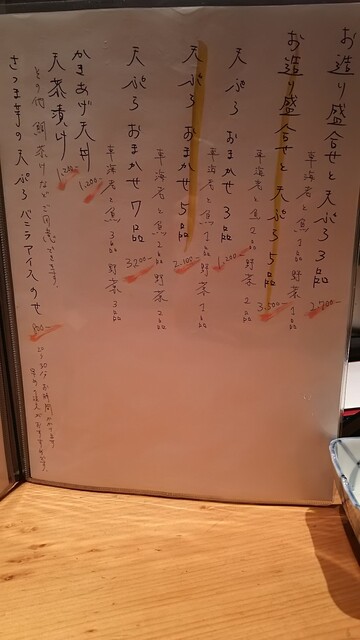 お造り盛合せと天ぷら3品
車海老と魚1品野菜1品
2,700-
お造り盛合せと天ぷら5品
車海老と魚2品野菜2品
3,500-
天ぷらおまかせ3品
車海老と魚1品野菜1品
1,200-
天ぷらおまかせ5品
車海老と魚2品野菜2品
2,100-
天ぷらおまかせ7品
車海老と魚3品野菜3品
3200-
かきあげ天丼
1,200-
天茶漬け
1,200-
その他、鯛茶けなどご用意できます。
さつま芋の天ぷらバニラアイスのせ
800-
20〜30分お時間かかります